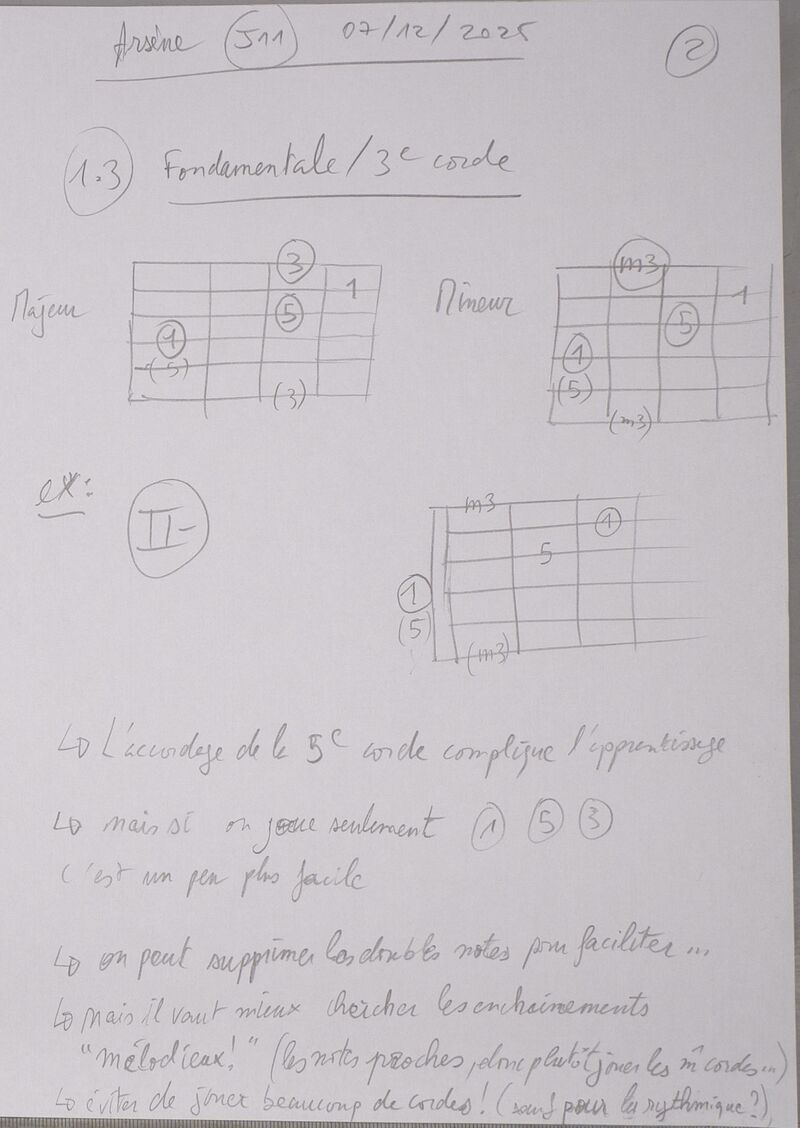 Arsène J11 07/12/2025 2
1.3 Fondamentale / 3e corde
Majeur
3
1
5
1
(5)
(3)
Mineur
m3
1
5
1
(5)
(m3)
ex:
II-
m3
1
5
1
(5)
(m3)
↳ L'accordage de la 5e corde complique l'apprentissage
↳ mais si on joue seulement 1 5 3
c'est un peu plus facile
↳ on peut supprimer les doubles notes pour faciliter...
↳ mais il vaut mieux chercher les enchaînements
"mélodieux!" (les notes proches, donc plutôt jouer les m̂ cordes...)
↳ éviter de jouer beaucoup de cordes! (sauf pour la rythmique?)